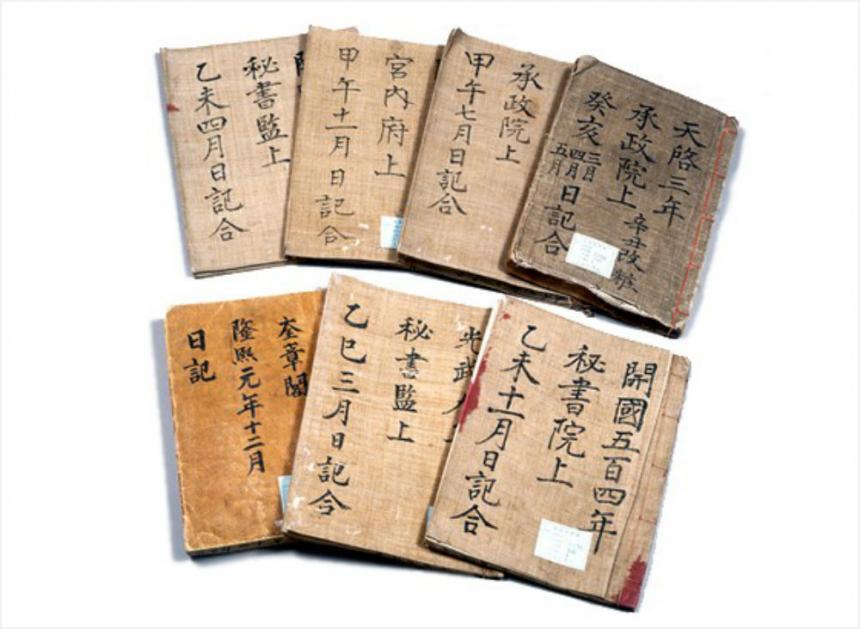 天啓三年
承政院上
辛丑改粧
癸亥
三月
四月
五月
日記合
承政院上
甲午七月日記合
宮內府上
甲午十一月日記合
秘書監上
乙未四月日記合
開國五百四年
秘書院上
乙未十一月日記合
光武
秘書監上
乙巳三月日記合
奎章閣
隆熙元年十二月
日記